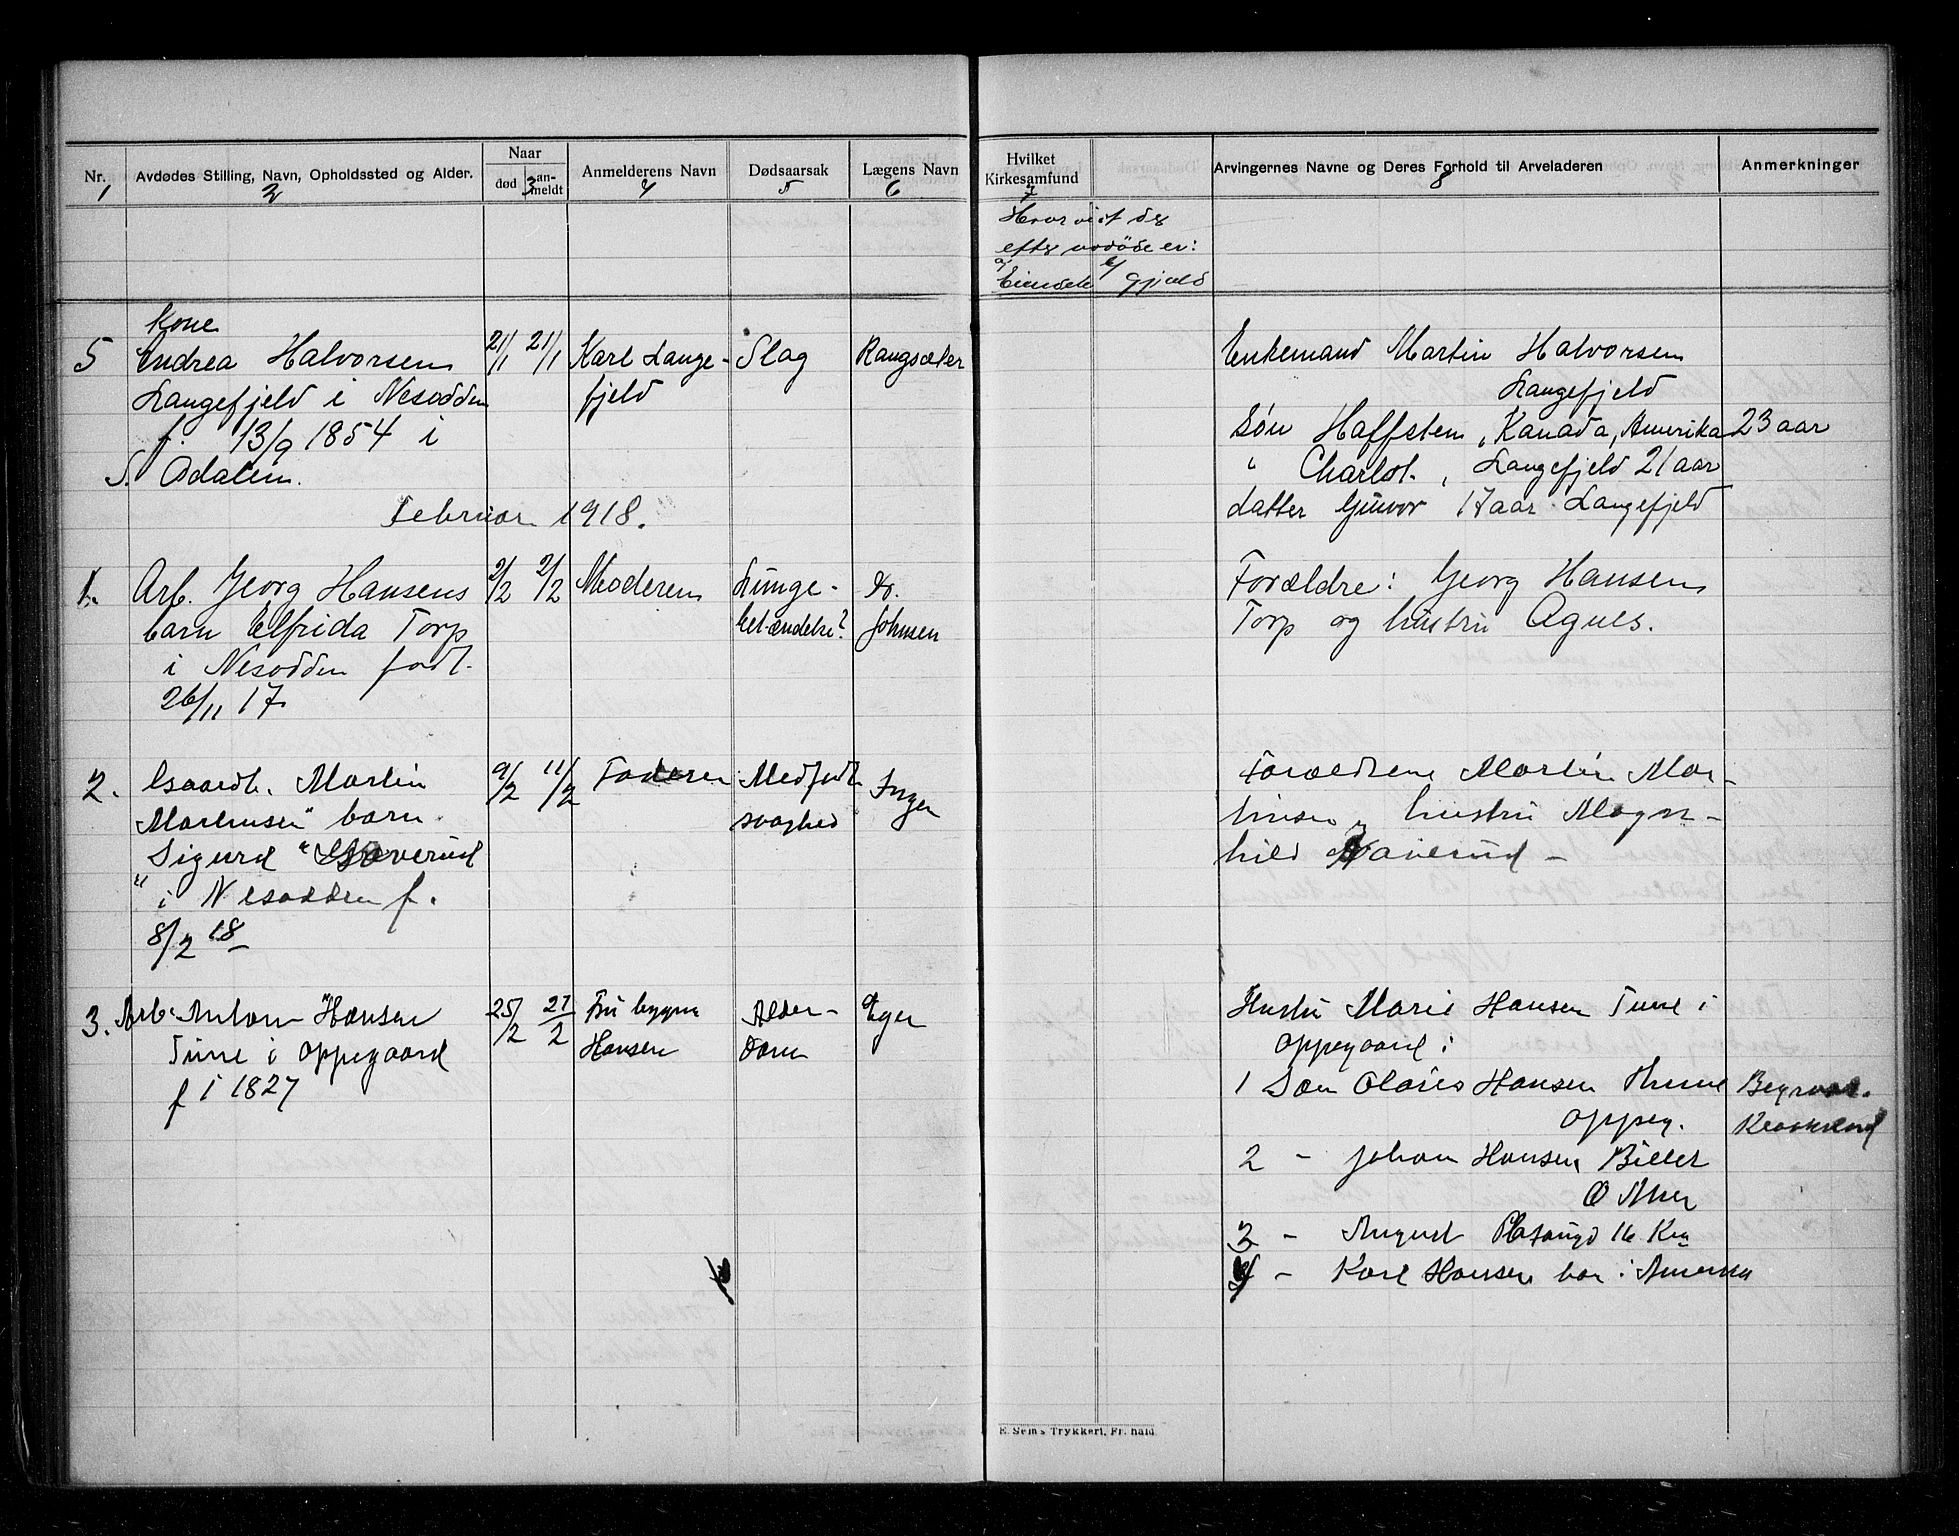 Nr. Avdødes Stilling, Navn, Opholdssted og Alder. Naar død an-meldt Anmelderens Navn Dødsaarsak Lægens Navn Hvilket Kirkesamfund Arvingernes Navne og Deres Forhold til Arveladeren Anmerkninger
1 2 3 4 5 6 7 8
Hvorvidt der
efter avdöde er:
a/ Eiendele b/ Gjæld
Kone
5 Andrea Halvorsen 21/1 21/1 Karl Lange- Slag Rangsæter
Langefjeld i Nesodden fjeld
f. 13/9 1854 i
S. Odalen.
Enkemand Martin Halvorsen
Langefjeld
Sön Haffsten, Kanada, Amerika 23 aar
" Charlot. , Langefjeld 21 aar
datter Gunvor 17 aar Langefjeld
Februar 1918.
1. Arb. Georg Hansens 2/2 2/2 Moderen Lunge- Dr.
barn Elfrida Torp betændelse? Johnsen
i Nesodden født
26/11 17
Forældre: Georg Hansen
Torp og hustru Agnes.
2. Gaardb. Martin 9/2 11/2 Faderen Medfødt Ingen
Martinsen" barn svaghed
Sigurd
" i Nesodden f.
8/2 18
Forældrene Martin Mar-
tinsen og hustru Magn-
hild
3. Arb. Anton Hansen 25/2 27/2 Fru Hansen Alder- Eger
Tune i Oppegaard dom
f i 1827
Hustru Marie Hansen Tune i
Oppegaard i
1 Søn Olaus Hansen Thune
Oppeg.
2 - Johan Hansen
3 - August 16 Kra
4 - Karl Hansen bor i Amerika
E. Sems Trykkeri, Fr.hald.